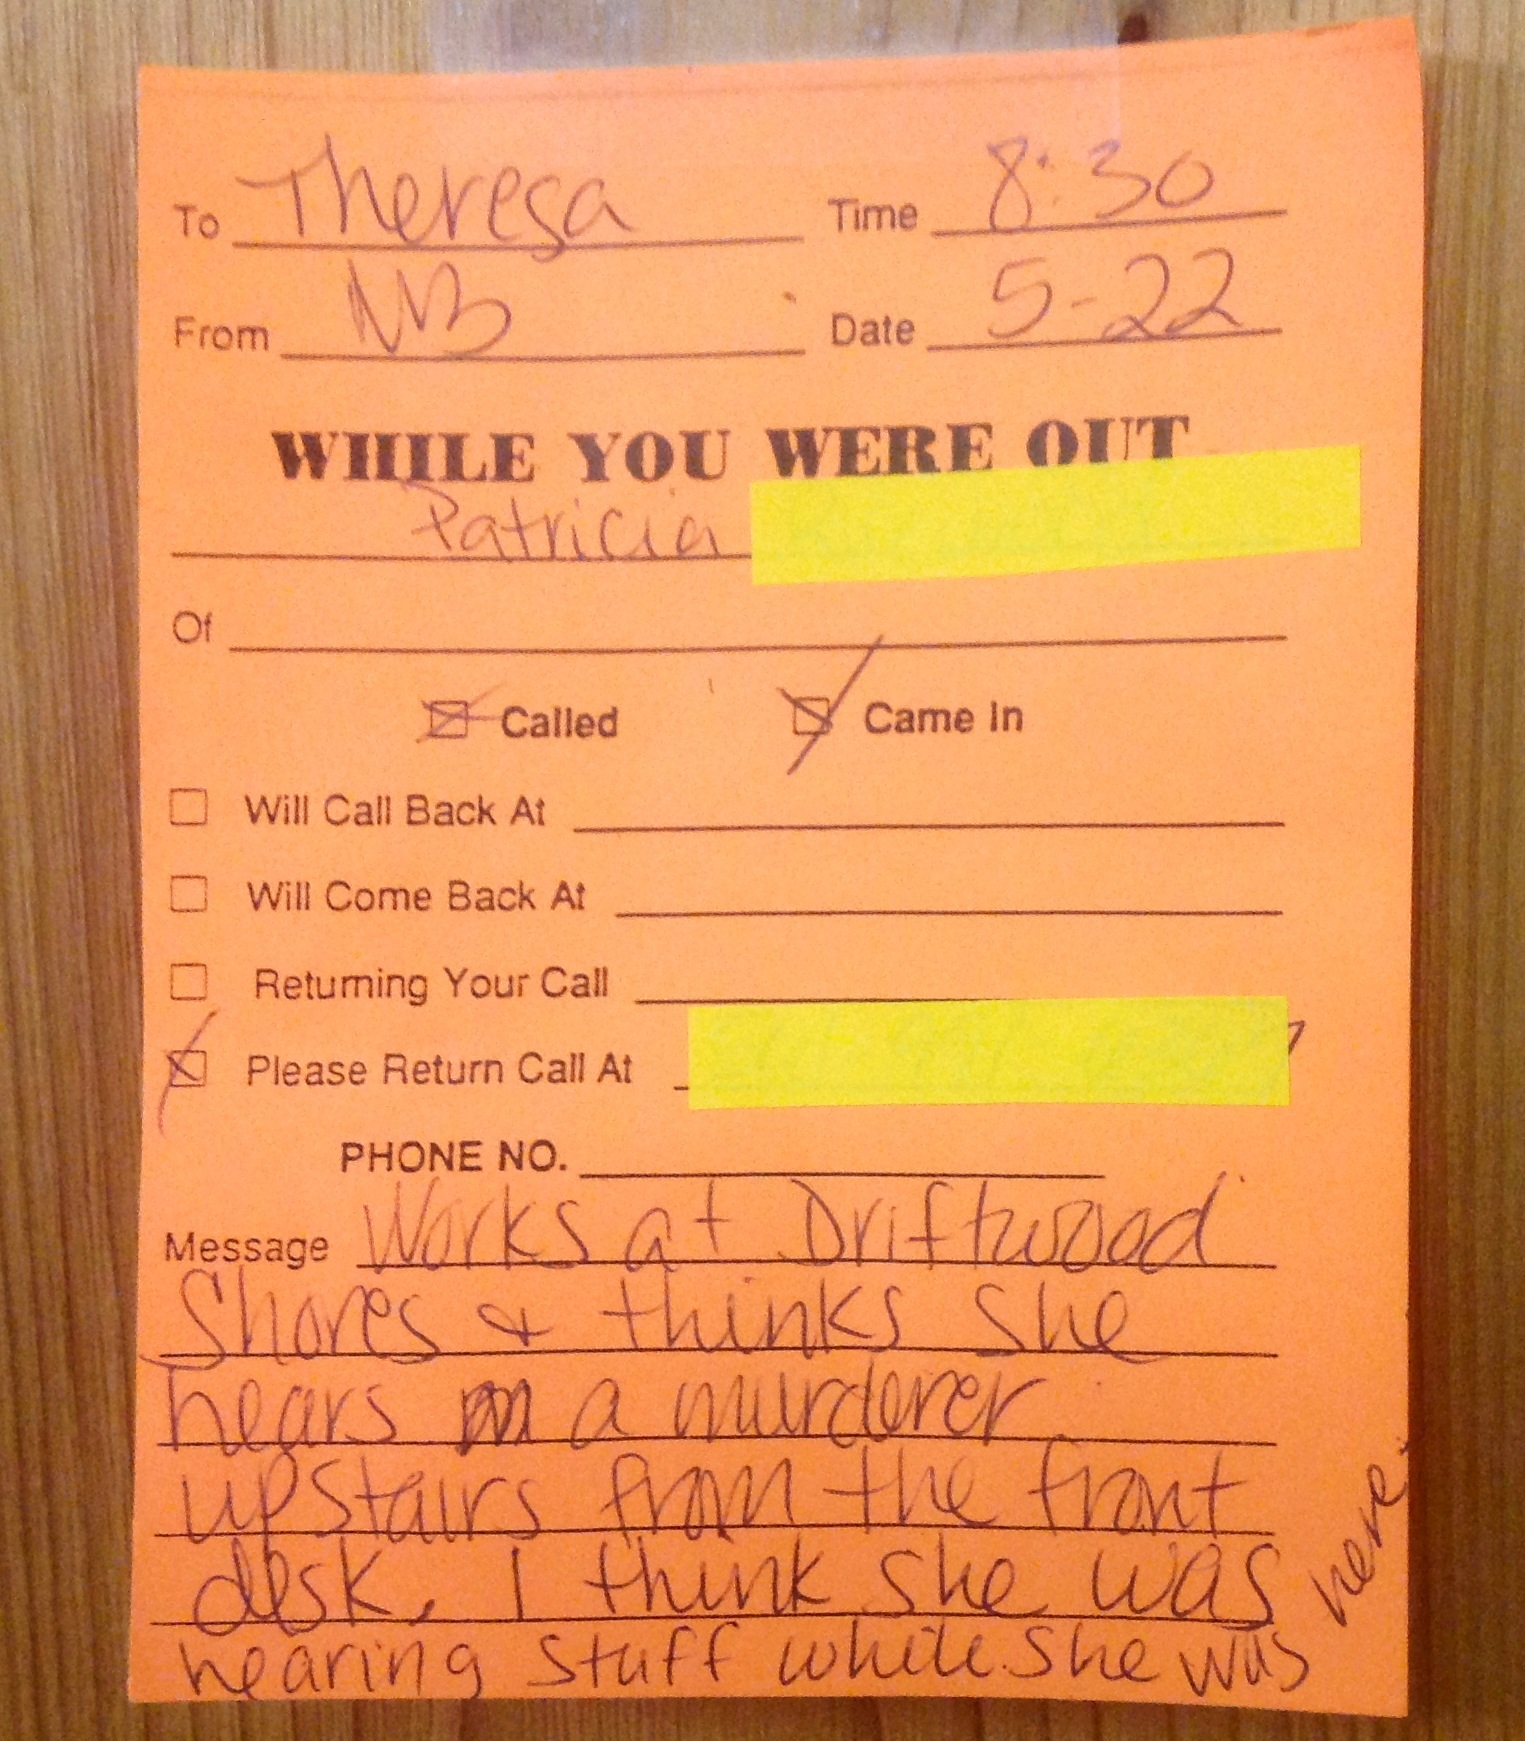 To Theresa Time 8:30
From NB Date 5-22
WHILE YOU WERE OUT
Patricia
Of
Called Came In
Will Call Back At
Will Come Back At
Returning Your Call
Please Return Call At
PHONE NO.
Message Works at Driftwood
Shores & thinks she
hears a murderer
upstairs from the front
desk. I think she was
hearing stuff while she was
here.